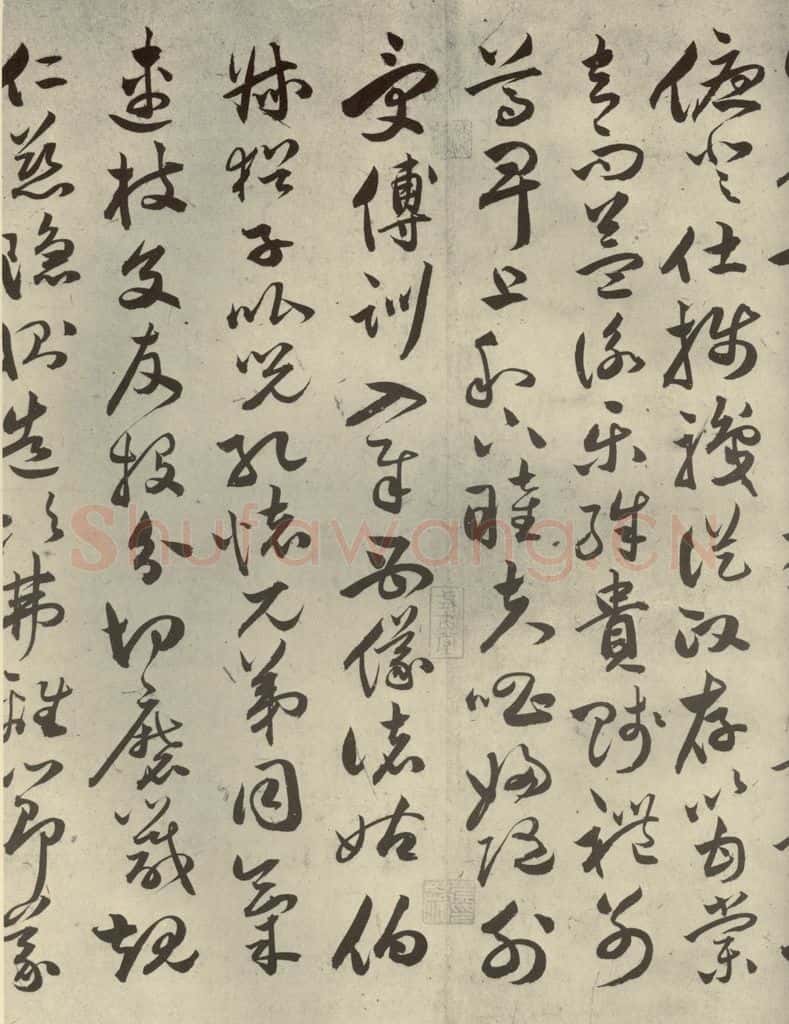 優登仕攝職從政存以甘棠
去而益詠樂殊貴賤禮別
尊卑上和下睦夫唱婦隨外
受傅訓入奉母儀諸姑伯
叔猶子比兒孔懷兄弟同氣
連枝交友投分切磨箴規
仁慈隱惻造次弗離節義
Shufawang.CN